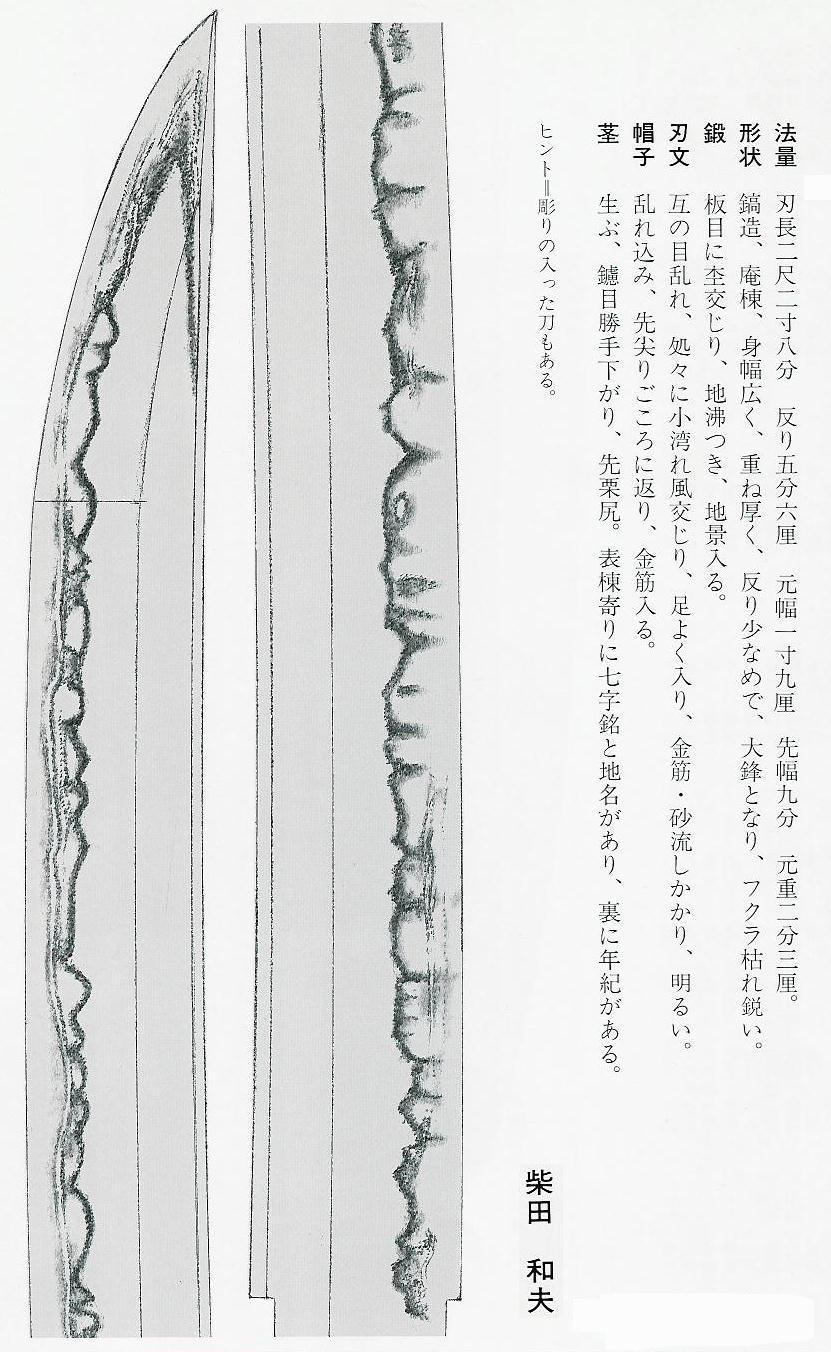 法量　刃長二尺二寸八分　反り五分六厘　元幅一寸九厘　先幅九分　元重二分三厘。
形状　鎬造、庵棟、身幅広く、重ね厚く、反り少なめで、大鋒となり、フクラ枯れ鋭い。
鍛　板目に杢交じり、地沸つき、地景入る。
刃文　互の目乱れ、処々に小湾れ風交じり、足よく入り、金筋・砂流しかかり、明るい。
帽子　乱れ込み、先尖りごころに返り、金筋入る。
茎　生ぶ、鑢目勝手下がり、先栗尻。表棟寄りに七字銘と地名があり、裏に年紀がある。
ヒント＝彫りの入った刀もある。
柴田　和夫